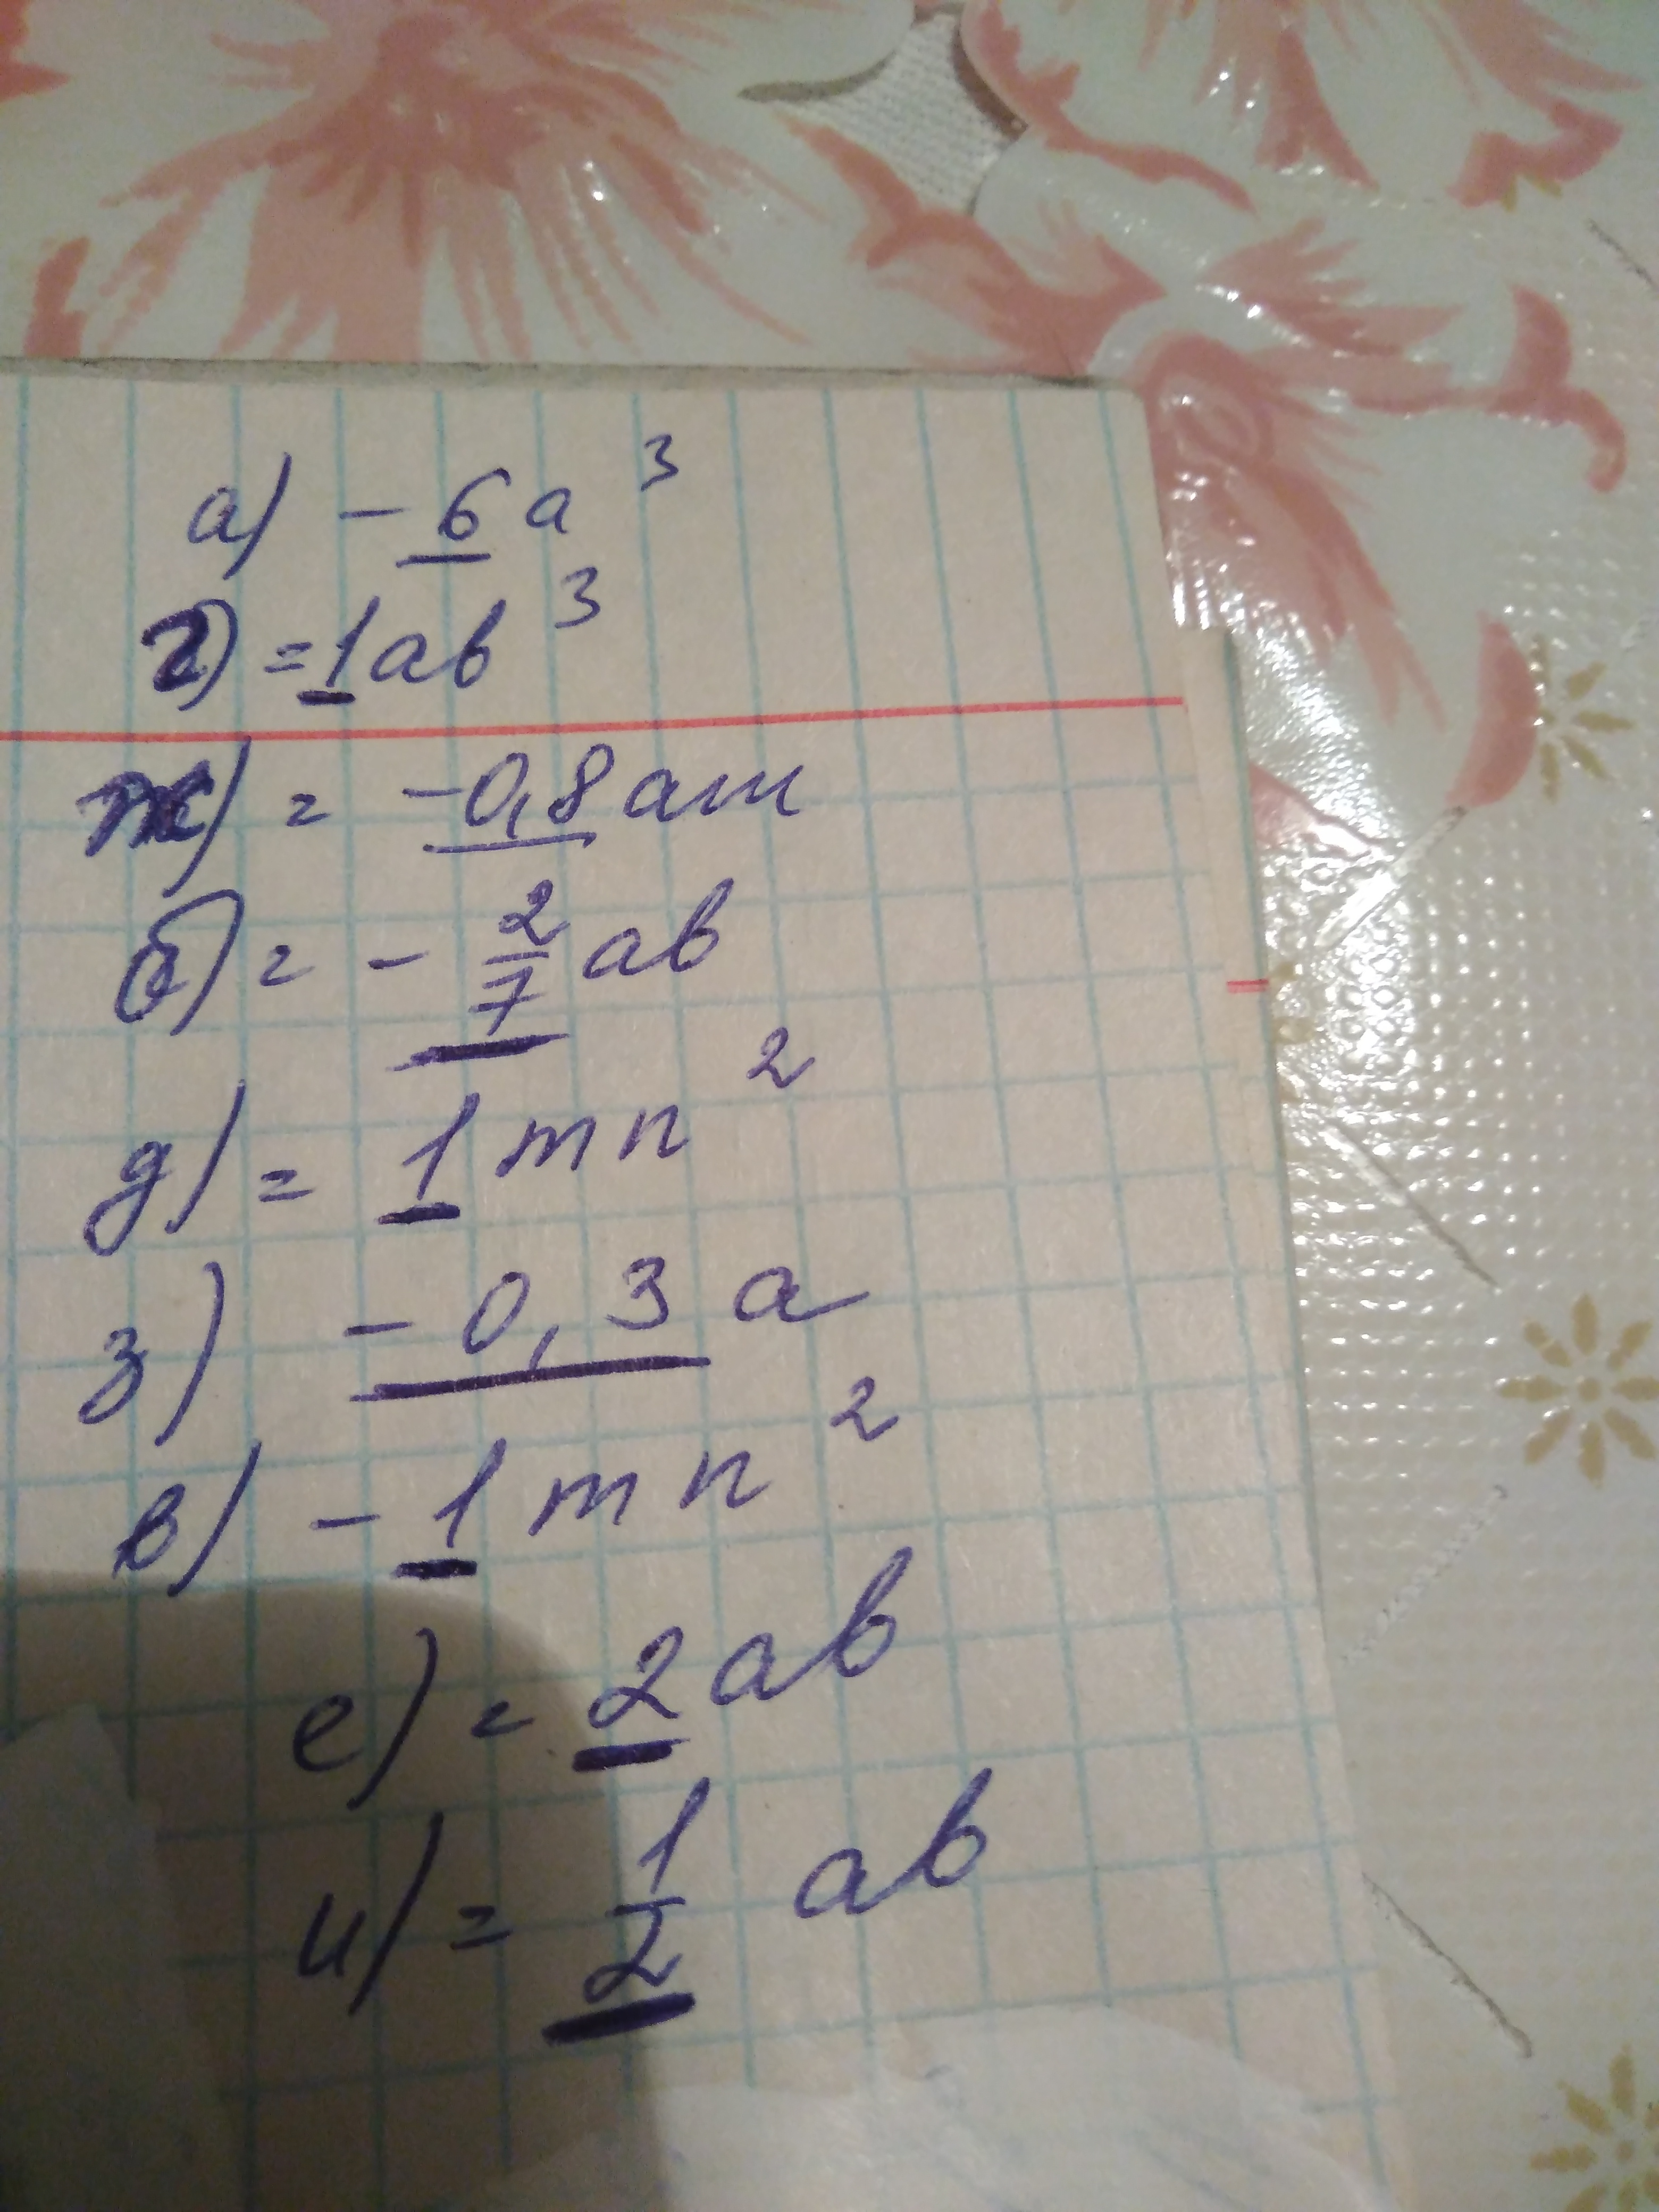 а) - 6a³
г) = 1ab³
ж) = -0,8am
б) = - 2/7 ab
д) = 1mn²
з) - 0,3 a
в) - 1mn²
е) = 2ab
и) = 1/2 ab